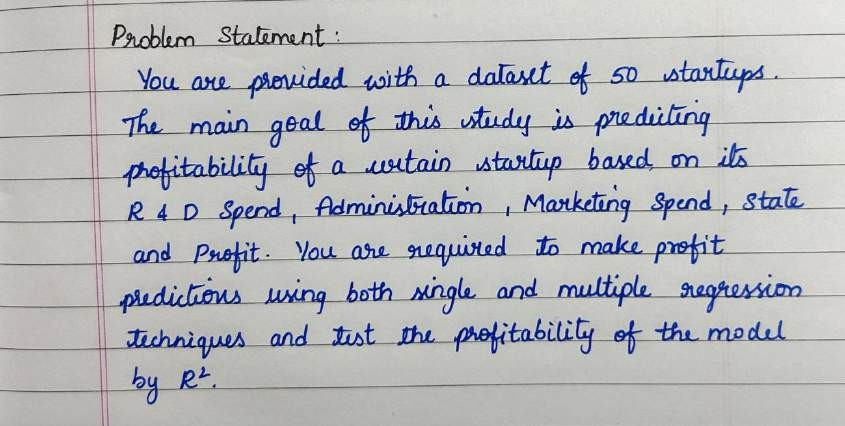 Problem Statement :
You are provided with a dataset of 50 startups.
The main goal of this study is predicting
profitability of a certain startup based on its
R & D Spend, Administration, Marketing Spend, State
and Profit. You are required to make profit
predictions using both single and multiple regression
techniques and test the profitability of the model
by R².